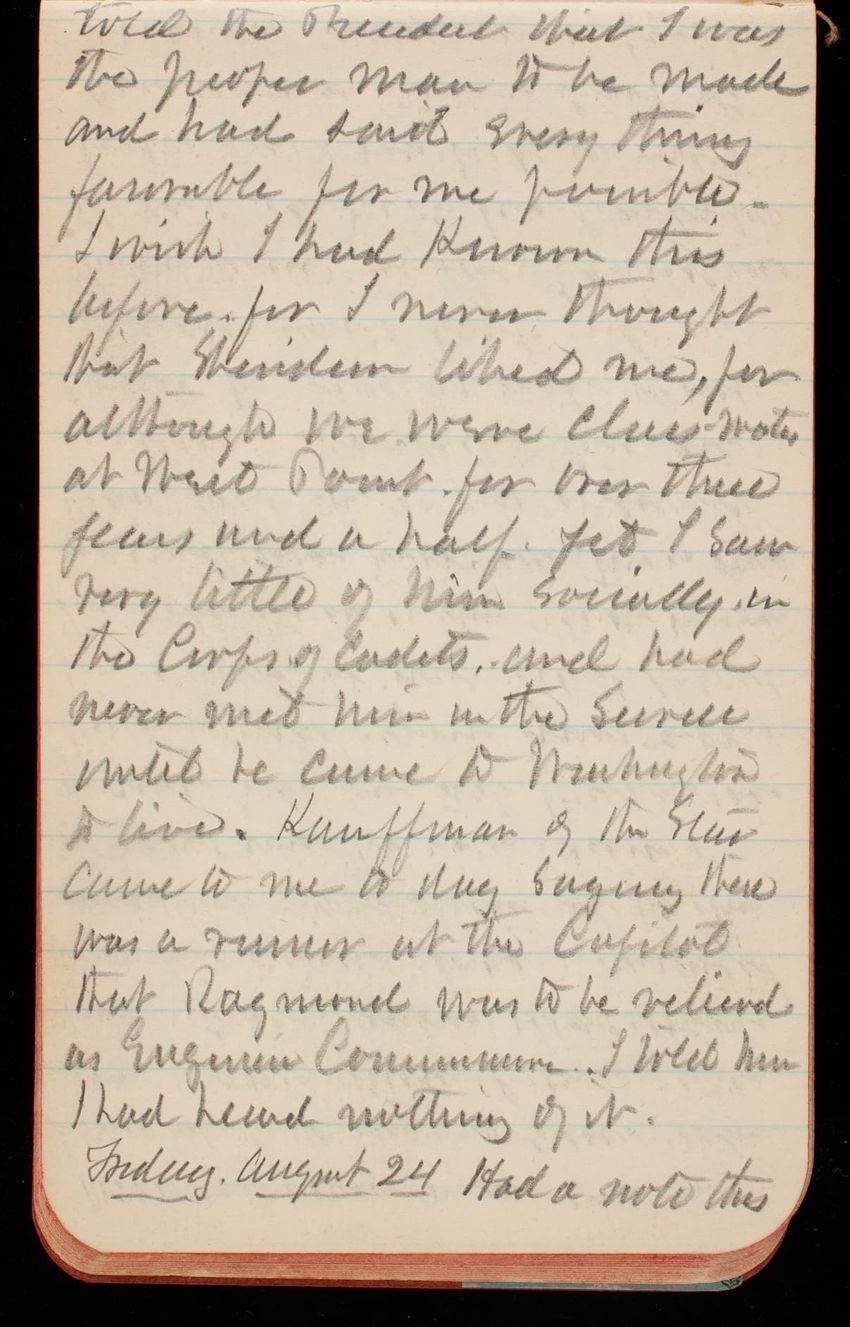 told the President that I was
the proper man to be made
and had said every thing
favorable for me possible.
I wish I had Known this
before. for I never thought
that Sheridan liked me, for
although we were class-mates
at West Point. for over three
years and a half. yet I saw
very little of him socially. in
the Corps of Cadets. and had
never met him in the Service
until he came to Washington
to live. Kauffman of the Star
came to me to day saying there
was a rumor at the Capitol
that Raymond was to be relieved
as Engineer Commissioner. I told him
I had heard nothing of it.
Friday. August 24 Had a note this